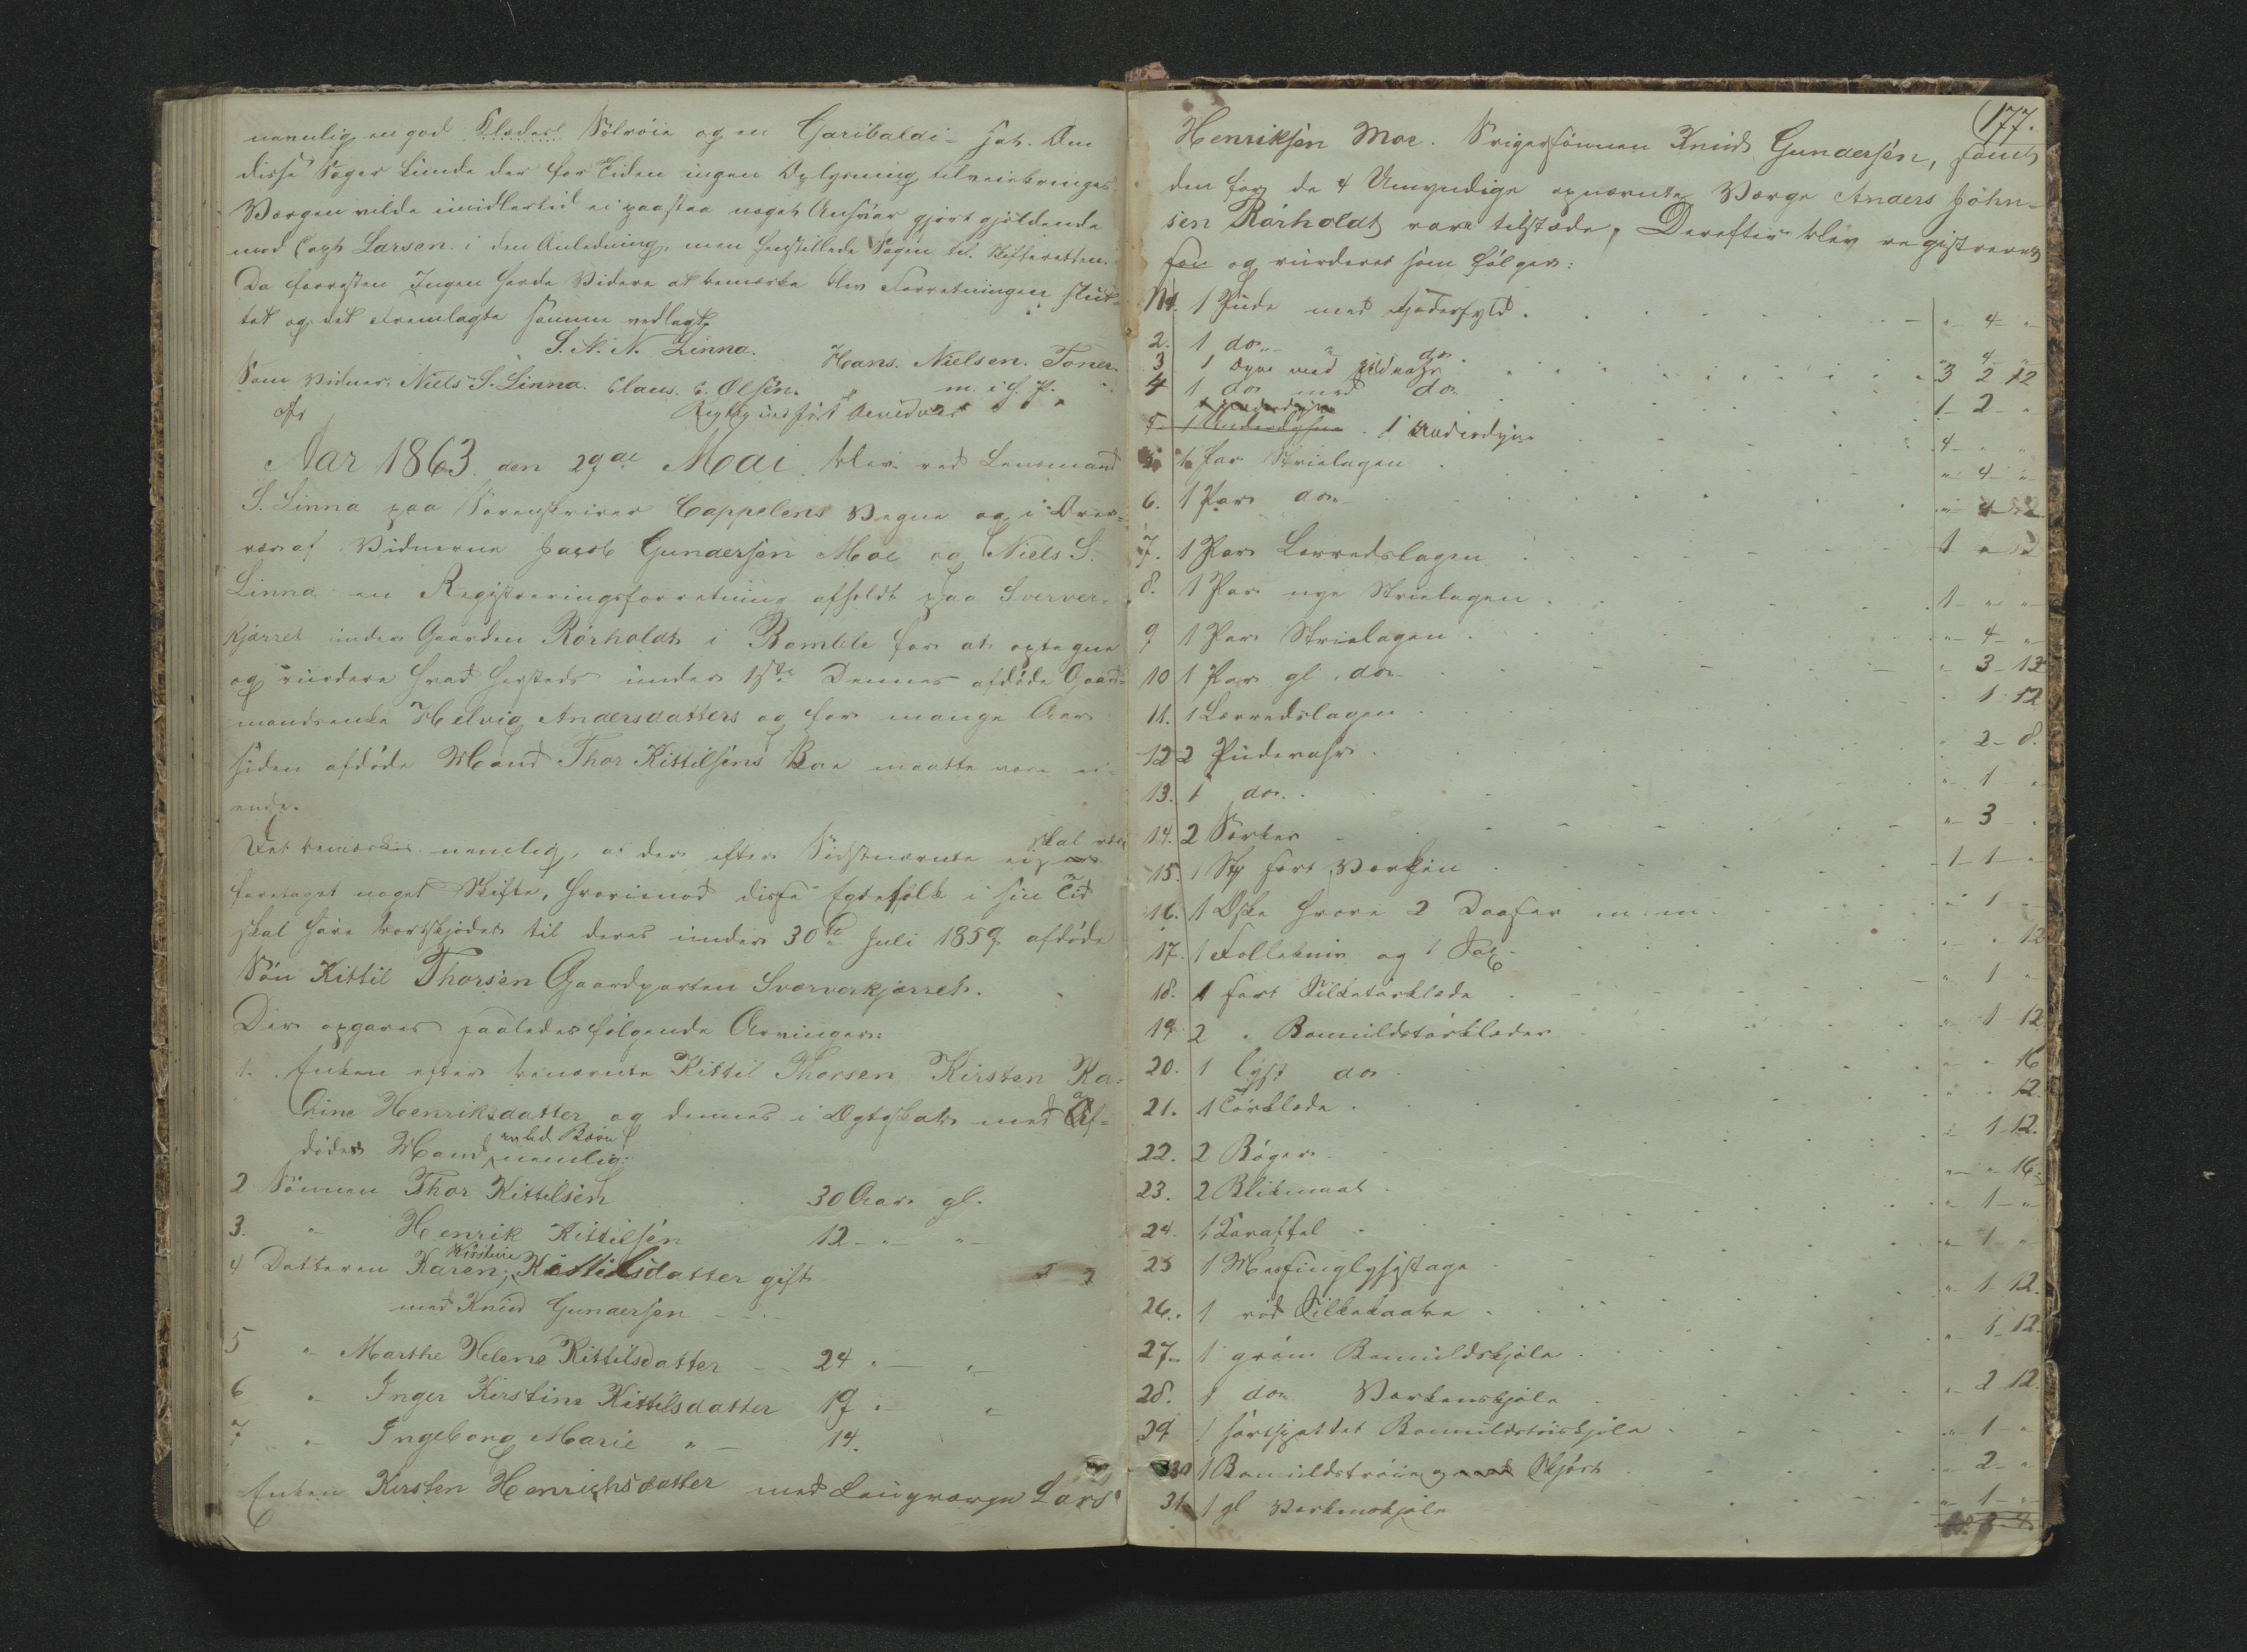 nemlig en god Klædes Vølrøie og en Garibaldi- Hat. Om
disse Sager kunde der for Tiden ingen Oplysning tilveiebringes.
Værgen vilde imidlertid ei paastaa noget Ansvar gjort gjældende
mod Capt Larsen i den Anledning, men henstillede Sagen til Skifteretten.
Da forresten Ingen havde Videre at bemærke blev Forretningen slut-
tet og det fremlagte samme vedlagt
S. N. N. Linna. Hans. Nielsen. Toner.
Som Vidner: Niels S. Linna. Claus. C. Olsen. m. i. h. P.
Aar 1863 den 29de Mai blev ved Lensmand
S. Linna paa Sorenskriver Cappelens Vegne og i Over-
vær af Vidnerne Jacob Gundersen Moe og Niels S.
Linna en Registreringsforretning afholdt paa Sverver-
kjærret under Gaarden Rørholdt i Bamble for at optegne
og vurdere hvad hersteds under 15de Dennes afdøde Gaard-
mandsenke Helvig Andersdatters og for mange Aar
siden afdøde Mand Thor Kittilsens Boe maatte være ei-
ende.
Det bemærkes nemlig, at der efter Sidstnævnte ei skal være
foretaget noget Skifte, hvorimod disse Egtefolk i sin Tid
skal have bortskjødet til deres under 30te Juli 1859 afdøde
Søn Kittil Thorsen Gaardparten Sververkjærret.
Der opgaves saaledes følgende Arvinger:
1. Enken efter benævnte Kittil Thorsen Kirsten Ka-
thine Henriksdatter og dennes i Ægteskab med Af-
dødes Mand avled Børn nemlig:
2 Sønnen Thor Kittilsen 30 Aar gl.
3. " Henrik Kittilsen 12 - " " -
4 Datteren Karen Kirstine Kittilsdatter gift
med Knud Gundersen - -
5 " Marthe Helene Kittilsdatter - 24 " - " -
6 " Inger Kirstine Kittilsdatter 19 " - " -
7 " Ingeborg Marie " - 14.
Enken Kirsten Henrichsdatter med Laugværge Lars
177.
Henriksen Moe. Svigersønnen Knud Gundersen, samt
den for de 4 Umyndige opnævnte Værge Anders John-
sen Rørholdt vare tilstæde. Derefter blev registreret
og vurderet som følger:
No 1. 1 Pude med Fjæderfyld. " 4 "
2. 1 do " do. " 4 "
3 1 Dyne med do. 3 2 12
4 1 do med do 1 - 2 - "
5 1 Underdyne 1 Underdyne 4 - " "
5. 1 Par Strielagen " 4 - "
6. 1 Par do.
7. 1 Par Lerredslagen
8. 1 Par nye Strielagen 1 - " "
9 1 Par Strielagen " - 4 - "
10 1 Par gl. do. " 3 - 12
11. 1 Lærredslagen " 1 12
12 2 Pudevahr " 2 - 8.
13. 1 do. " 1 "
14. 2 Særker " 3 - "
15. 1 Stk sort Værken - 1 - 1 - "
16. 1 Æske hvori 2 Daaser m: m: " 1 - "
17. 1 Follekniv og 1 Sax " " 12
18. 1 sort Silketørklæde " 1 "
19 2 " Bomuldstørklæder " 1 12
20. 1 lyst do " " 16
21. 1 Tørklæde " " 12.
22. 2 Bøger " 1 12.
23. 2 Blikmaal " " 16
24. 1 Karaffel " 1 - "
25 1 Messinglysestage " 1 "
26. 1 rød Silkekaabe " 1 12.
27 1 grøn Bomuldskjole " 1 12.
28. 1 do Værkenskjole " 2 12.
29 1 sortspettet Bomuldstøiskjole " 1 - "
30 1 Bomuldstrøie og Skjørt " 2 - "
31. 1 gl Værkenskjole " 1 - "